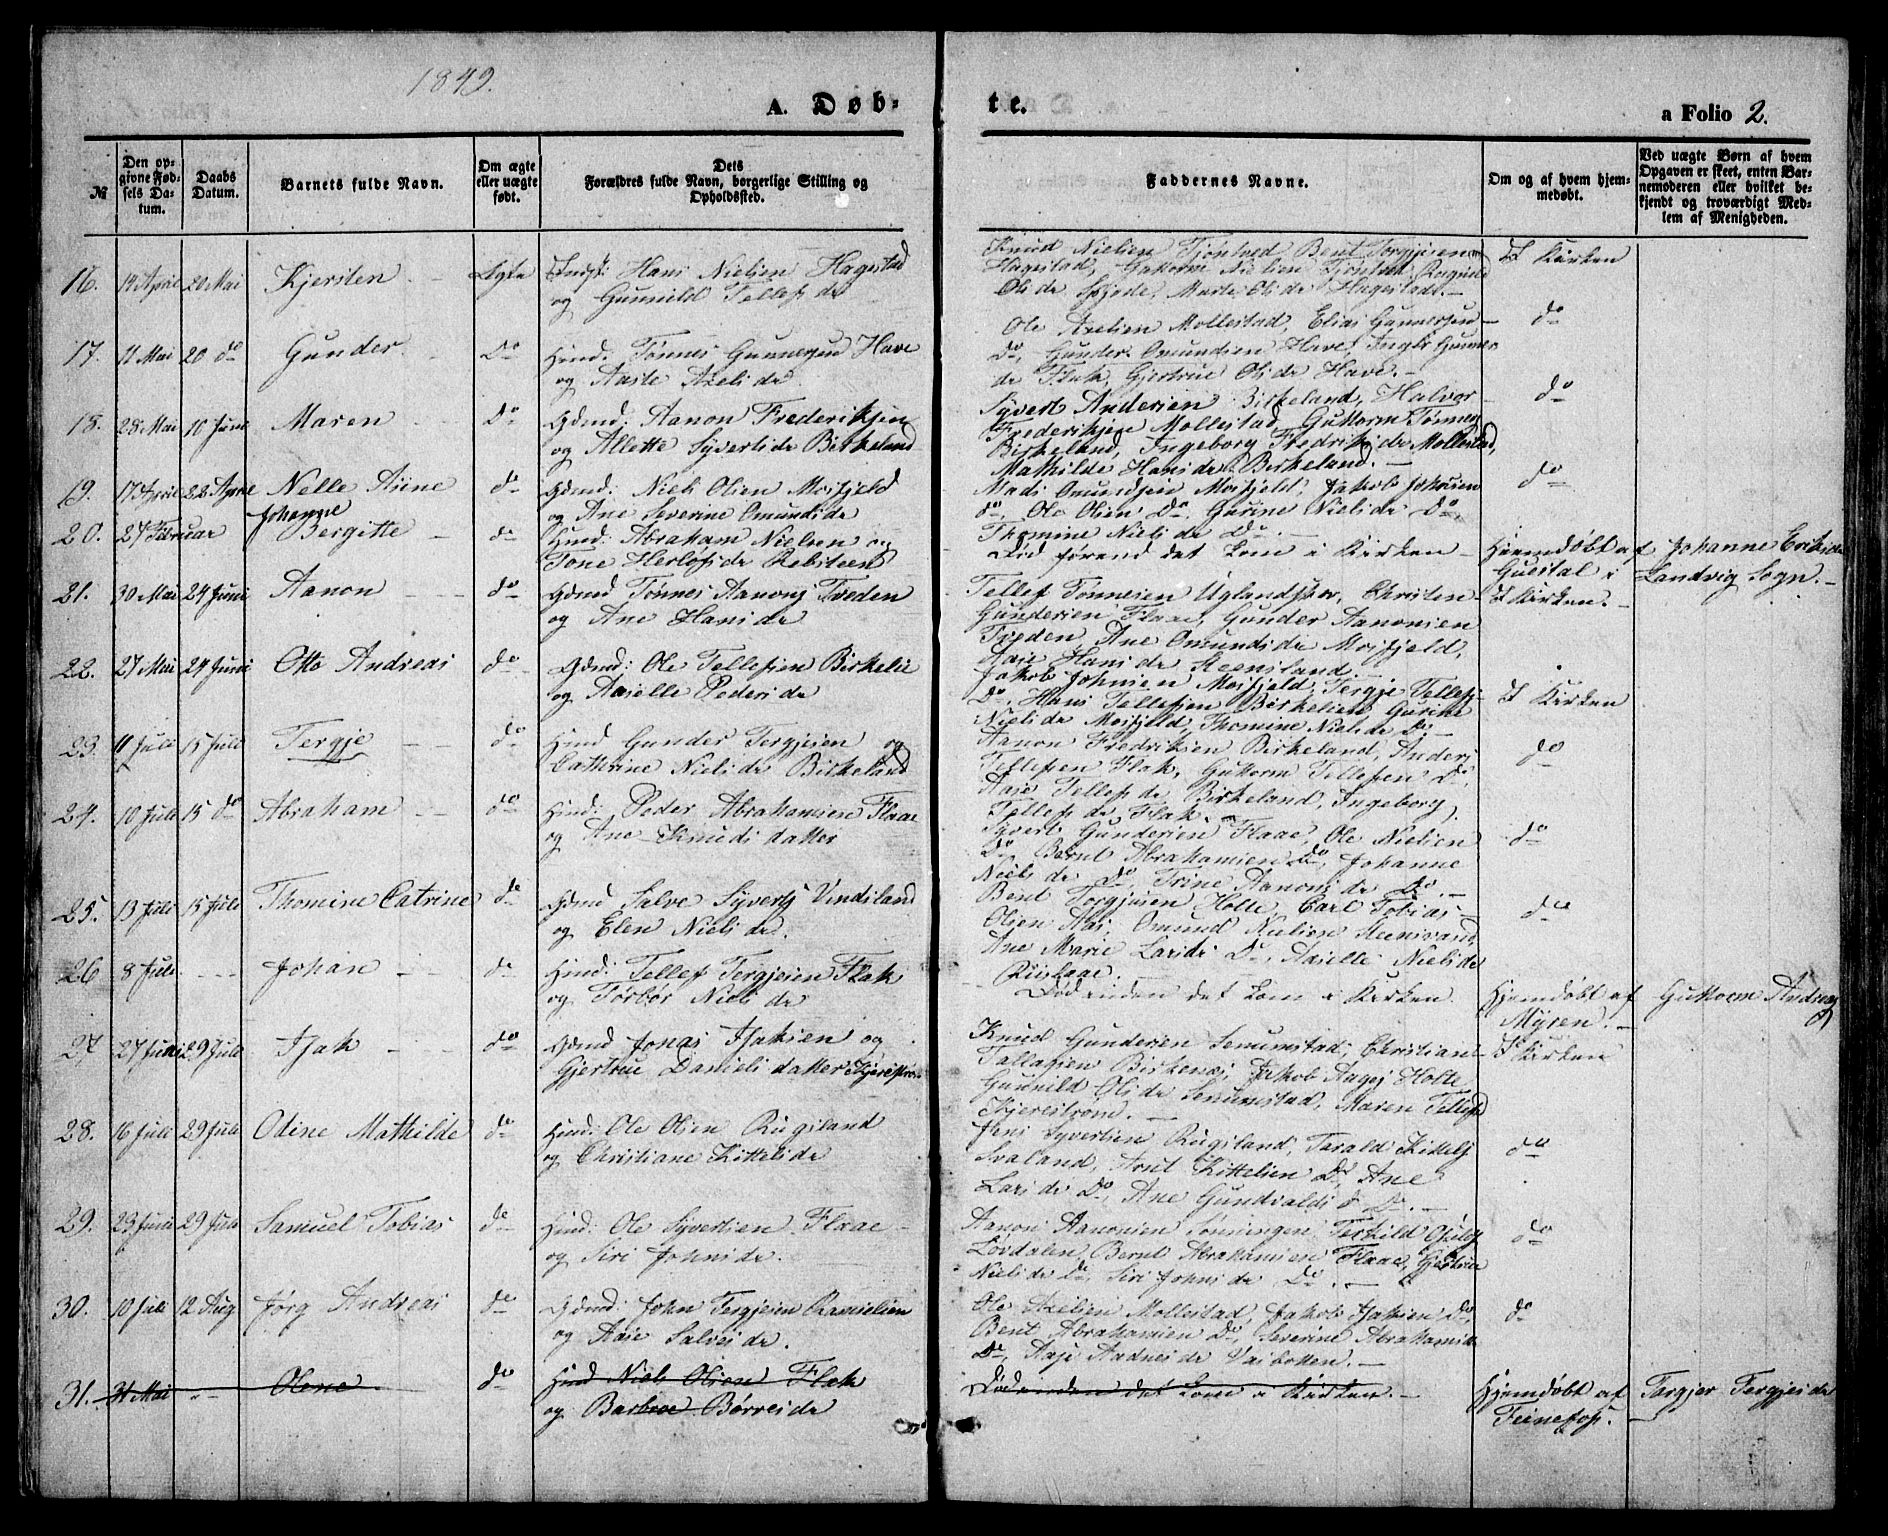 1849.
A. Døb-
te.
a Folio 2.
№
Den op-
givne Fød-
sels Da-
tum.
Daabs
Datum.
Barnets fulde Navn.
Om ægte
eller uægte
født.
Dets
Forældres fulde Navn, borgerlige Stilling og
Opholdssted.
Faddernes Navne.
Om og af hvem hjem-
medøbt.
Ved uægte Børn af hvem
Opgaven er skeet, enten Bar-
nemoderen eller hvilket be-
kjendt og troværdigt Med-
lem af Menigheden.
16. 14 April 20 Mai Kjersten Ægte Hans Nielsen Hagestad
og Gunnild Tellefsdr
Knud Nielsen Tjøntved Bent Torgjersen
Hagestad, Guttorm Nielsen
Olsdr Marte Olsdr Hagestad.
I Kirken
17. 11 Mai 20 do Gunder Do Huusd: Tønnes Gunnersen Have
og Aaste Axelsdr
Ole Axelsen Mollestad, Elias Gunnersen
Do, Gunder Omundsen Have, Gunners
dr Flak, Gjertrue Olsdr Have.
do
18. 28 Mai 10 Juni Maren do Gdmd: Aanon Frederiksen
og Allette Syvertsdr Birkeland
Syvert Andersen Birkeland, Halvor
Frederiksen Mollestad, Guttorm Tønnes
Birkeland, Ingeborg Fredriksdr Mollestad,
Mathilde Hansdr Birkeland.
do
19. 17 April 22 April Nelle Aline do Gdmd: Niels Olsen Moisfjeld
og Ane Severine Omundsdr
Mads Omundsen Moisfjeld, Jakob Johnsen
do, Ole Olsen Do, Gurine Nielsdr Do,
Thomine Nielsdr Do.
do
20. 27 Februar Johanne
Bergitte do Huusd: Abraham Nielsen og
Tone Herlofsdr Rebsteen
Død førend det kom i Kirken
Hjemdøbt af Johanne Eriksdr
i Landvig Sogn.
21. 30 Mai 24 Juni Aanon do Gdmd Tønnes Aanons Treden
og Ane Hansdr
Tellef Tønnesen Christen
Gundersen Flaae, Gunder Aanonsen
Treden, Ane Omundsdr Moisfjeld,
Aase Hansdr
I Kirken.
22. 27 Mai 24 Juni Otto Andreas do Gdmd: Ole Tellefsen Birkelie
og Pedersdr
Jakob Johnsen Moisfjeld, Tergje Tellefs
Do, Hans Tellefsen Birkelien, Gurine
Nielsdr Moisfjeld, Thomine Nielsdr Do.
I Kirken
23. 11 Juli 15 Juli Tergje do Huusd Gunder Tergjesen og
Cathrine Nielsdr Birkeland
Aanon Fredriksen Birkeland, Anders
Tellefsen Flak, Guttorm Tellefsen Do,
Aase Tellefsdr Birkeland, Ingeborg
Tellefsdr Flak.
do
24. 10 Juli 15 do Abraham do Huusd: Peder Abrahamsen Flaae
og Ane Knudsdatter
Syvert Gundersen Flaae, Ole Nielsen
Do Bernt Abrahamsen Do, Johanne
Nielsdr Do, Trine Aanonsdr Do.
do
25. 13 Juli 15 Juli Thomine Catrine do Gdmd Salve Syverts Vindsland
og Elen Nielsdr.
Bent Torgjusen Holte, Carl Tobias
Olsen Aas, Omund Nielsen
Ane Marie Larsdr Do, Nielsdr
do
26 8 Juli Johan do Huusd: Tellef Tergjesen Flak
og Torbør Nielsdr
Død inden det kom i Kirken.
Hjemdøbt af Guttorm Andreas
Myren.
27 27 Juni 29 Juli Isak do Gdmd Jonas Isaksen og
Gjertrue Danielsdatter Kjerestrøm
Knud Gundersen Senumstad, Christian
Tallaksen Birkenes, Jakob Aages Holte
Gunnild Olsdr Senumstad, Maren Tellefsd
Kjerestrøm.
I Kirken
28. 16 Juli 29 Juli Odine Mathilde do Huusd: Ole Olsen Rugsland
og Christiane Kittelsdr
Jens Syvertsen Rugsland, Tarald Kittels
Svaland, Arnt Kittelsen Do, Ane
Larsdr Do, Ane Gundvaldsd Do.
do
29. 23 Juni 29 Juli Samuel Tobias do Huusd: Ole Syvertsen Flaae
og Siri Johnsdr.
Aanon Aanonsen Terkild
Løvdalen, Bernt Abrahamsen Flaae, Gjertrue
Nielsdr Do, Siri Johnsdr Do.
do
30. 10 Juli 12 Aug Jørg Andreas do Gdmd: John Tergjesen
og Aase Salvesdr.
Ole Axelsen Mollestad, Jakob Isaksen Do,
Bent Abrahamsen Do, Severine Abrahamsdr
Do, Aase Aadnesdr Vaibotten.
do
31. 31 Mai Olene do Huusd Niels Olsen Flak
og Barbroe Børresdr
Død inden det kom i Kirken.
Hjemdøbt af Torgjer Tergjesdr
Teinefos.